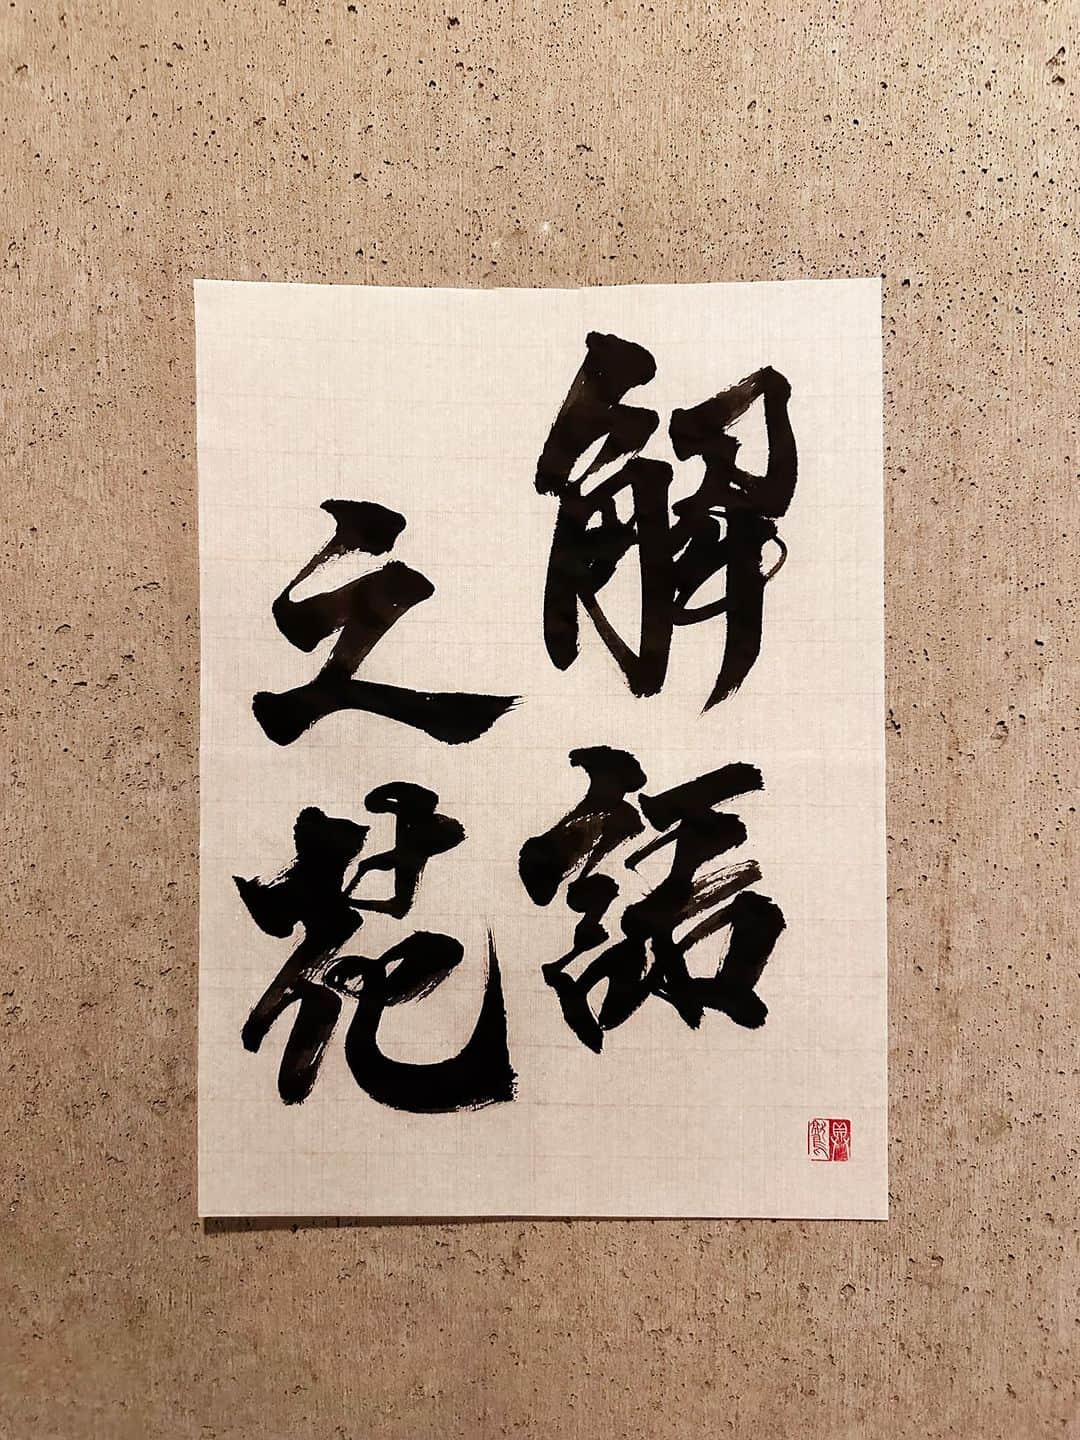 解語
之花